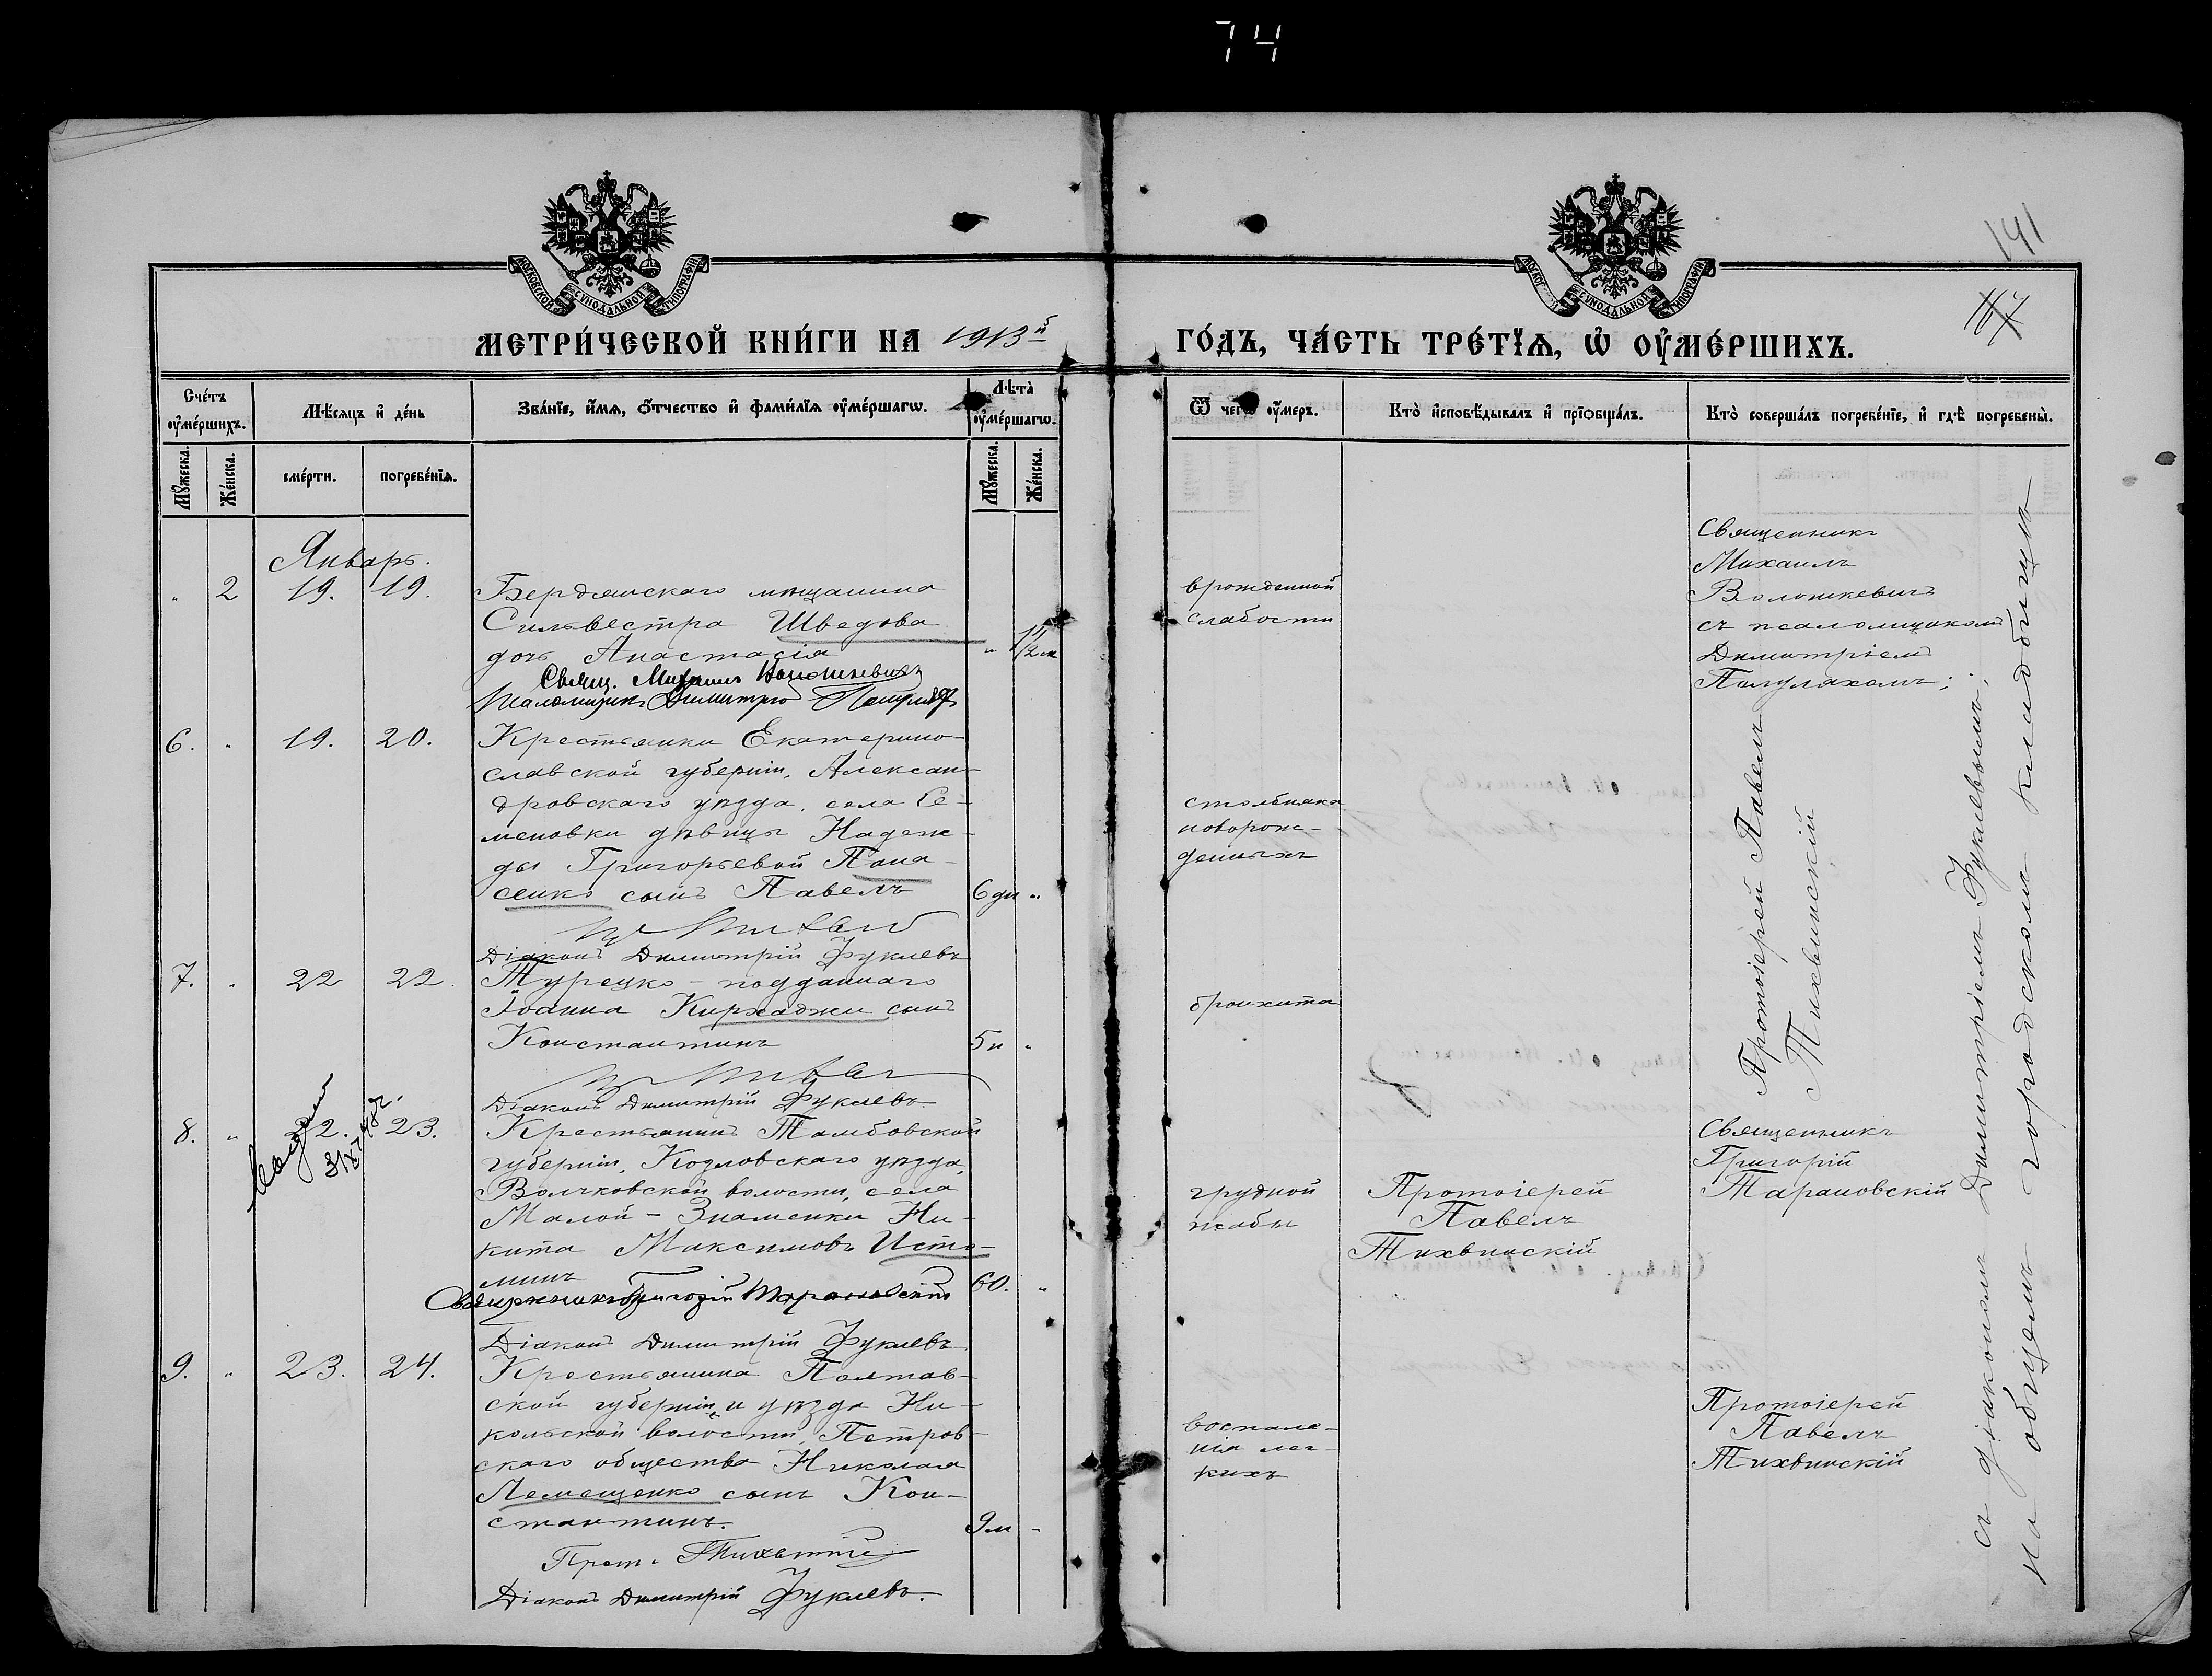 74
141
МОСКОВСКОЙ СУНОДАЛЬНОЙ ТИПОГРАФІИ
СУНОДАЛЬНОЙ ТИПОГРАФІИ
МЕТРИ́ЧЕСКОЙ КНИ́ГИ НА 1913й ГО́ДЪ, ЧА́СТЬ ТРЕ́ТІѦ, Ѡ҆ ОУ҆МЕ́РШИХЪ.
Сче́тъ оу҆ме́ршихъ.
Мꙋ́жеска.
Же́нска.
Мѣ́сяцъ и҆ де́нь
сме́рти.
погребе́нїѧ.
Зва́нїе, и҆́мѧ, ѻ҆́тчество и҆ фами́лїѧ оу҆ме́ршагѡ.
Лѣ́та оу҆ме́ршагѡ.
Мꙋ́жеска.
Же́нска.
Ѿ чегѡ̀ оу҆́меръ.
Кто̀ и҆сповѣ́дывалъ и҆ прїѡбща́лъ.
Кто̀ соверша́лъ погребе́нїе, и҆ гдѣ̀ погребены̀.
Январь.
" 2 19. 19.
Бердянскаго мѣщанина
Сильвестра Шведова
дочь Анастасія
" 1 1/2 м
Свящ. Михаилъ Волошкевичъ
Псаломщикъ Димитрій
врожденной
слабости
Священникъ
Михаилъ
Волошкевичъ
съ псаломщикомъ
Димитріемъ
Полуляхомъ;
6. " 19. 20.
Крестьянки Екатерино-
славской губерніи, Алексан-
дровскаго уѣзда, села Се-
меновки дѣвицы Надеж-
ды Григорьевой Пана-
сенко сынъ Павелъ
6 дн "
Діаконъ Димитрій Фуклевъ
столбняка
новорож-
денныхъ
Протоіерей Павелъ
Тихвинскій
7. " 22 22.
Турецко-подданнаго
Іоанна Кирхаджи сынъ
Константинъ
5 н "
Діаконъ Димитрій Фуклевъ.
бронхита
8. " 22. 23.
Крестьянинъ Тамбовской
губерніи, Козловскаго уѣзда,
Волчковской волости, села
Малой-Знаменки Ни-
кита Максимовъ Исто-
минъ
60. "
Священникъ Григорій Тарановскій
Діаконъ Димитрій Фуклевъ
грудной
жабы
Протоіерей
Павелъ
Тихвинскій
Священникъ
Григорій
Тарановскій
9. " 23. 24.
Крестьянина Полтав-
ской губерніи и уѣзда Ни-
кольской волости, Петров-
скаго общества Николая
Лемещенко сынъ Кон-
стантинъ.
9 м "
Прот. Тихвинскій
Діаконъ Димитрій Фуклевъ.
воспале-
нія лег-
кихъ
Протоіерей
Павелъ
Тихвинскій
съ діакономъ Димитріемъ Фуклевымъ;
на общемъ городскомъ кладбищѣ